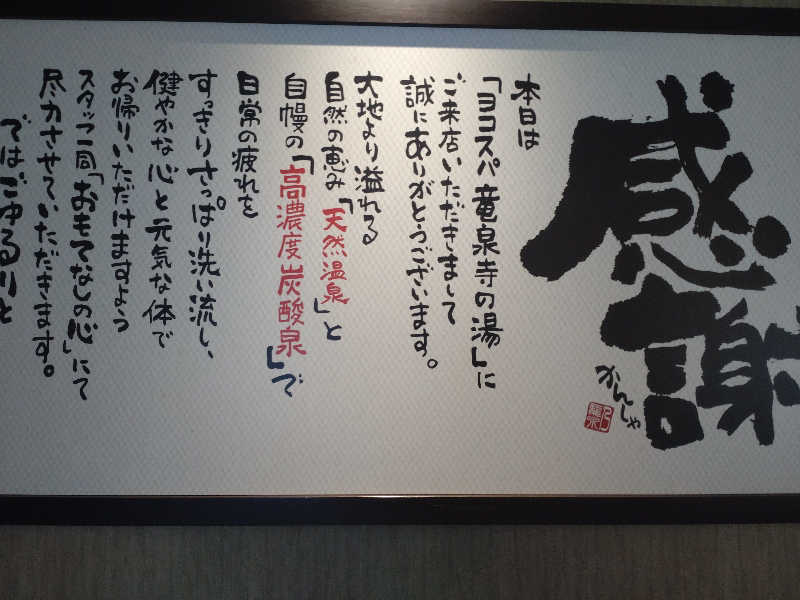 感謝
かんしゃ
本日は
「ヨコスパ 竜泉寺の湯」に
ご来店いただきまして
誠にありがとうございます。
大地より溢れる
自然の恵み「天然温泉」と
自慢の「高濃度炭酸泉」で
日常の疲れを
すっきりさっぱり洗い流し、
健やかな心と元気な体で
お帰りいただけますよう
スタッフ一同「おもてなしの心」にて
尽力させていただきます。
ではごゆるりと